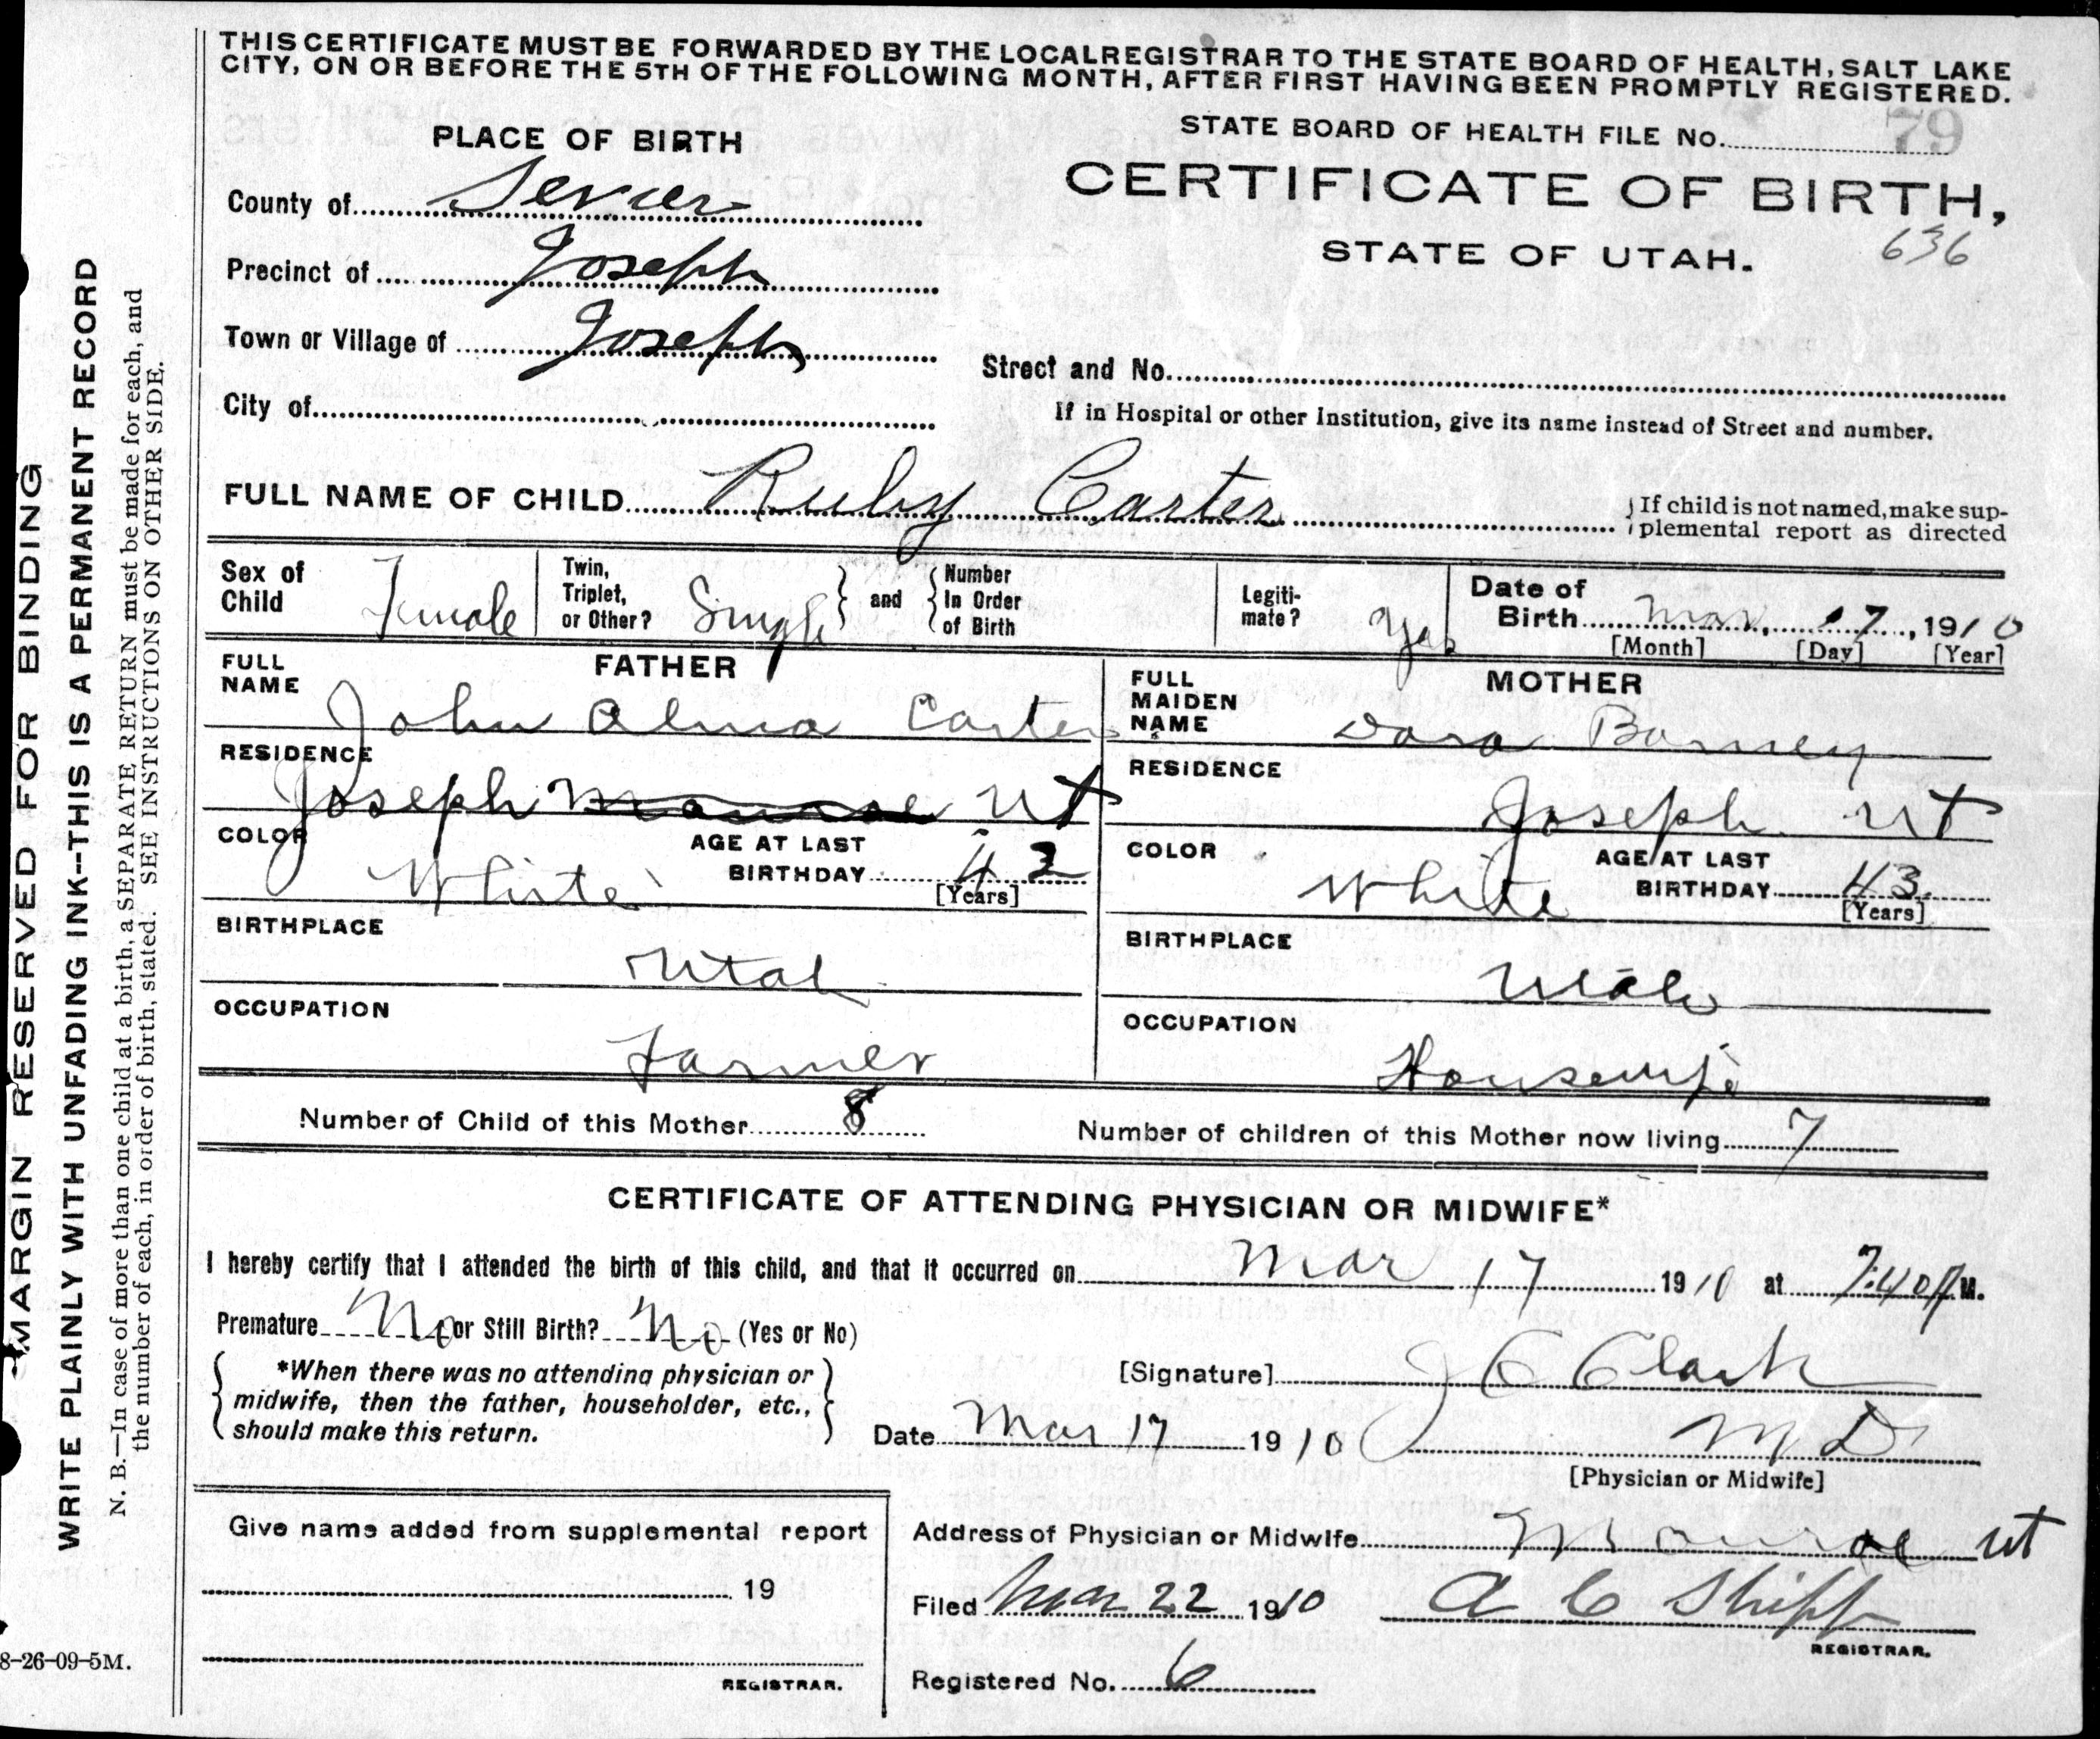 THIS CERTIFICATE MUST BE FORWARDED BY THE LOCAL REGISTRAR TO THE STATE BOARD OF HEALTH, SALT LAKE
CITY, ON OR BEFORE THE 5TH OF THE FOLLOWING MONTH, AFTER FIRST HAVING BEEN PROMPTLY REGISTERED.
PLACE OF BIRTH
STATE BOARD OF HEALTH FILE No. 79
County of Sevier
CERTIFICATE OF BIRTH,
STATE OF UTAH. 636
Precinct of Joseph
Town or Village of Joseph
Street and No.
City of
If in Hospital or other Institution, give its name instead of Street and number.
FULL NAME OF CHILD Ruby Carter
If child is not named, make sup-
plemental report as directed
Sex of Child Female
Twin, Triplet, or Other? Single and Number In Order of Birth
Legiti-
mate? Yes
Date of Birth Mar, 17, 1910
[Month] [Day] [Year]
FATHER
FULL NAME John Alma Carter
RESIDENCE
Joseph Monroe Ut
COLOR White
AGE AT LAST BIRTHDAY 42
[Years]
BIRTHPLACE
Utah
OCCUPATION
Farmer
MOTHER
FULL MAIDEN NAME Dora Barney
RESIDENCE
Joseph Ut
COLOR White
AGE AT LAST BIRTHDAY 43
[Years]
BIRTHPLACE
Utah
OCCUPATION
Housewife
Number of Child of this Mother 8
Number of children of this Mother now living 7
CERTIFICATE OF ATTENDING PHYSICIAN OR MIDWIFE*
I hereby certify that I attended the birth of this child, and that it occurred on Mar 17 1910 at 7:40 P M.
Premature No or Still Birth? No (Yes or No)
*When there was no attending physician or
midwife, then the father, householder, etc.,
should make this return.
[Signature] J C Clark
Date Mar 17 1910
M D
[Physician or Midwife]
Give name added from supplemental report
19
REGISTRAR.
Address of Physician or Midwife Monroe Ut
Filed Mar 22 1910 A C Shipp
REGISTRAR.
Registered No. 6
MARGIN RESERVED FOR BINDING
WRITE PLAINLY WITH UNFADING INK--THIS IS A PERMANENT RECORD
N. B.—In case of more than one child at a birth, a SEPARATE RETURN must be made for each, and
the number of each, in order of birth, stated. SEE INSTRUCTIONS ON OTHER SIDE.
8-26-09-5M.